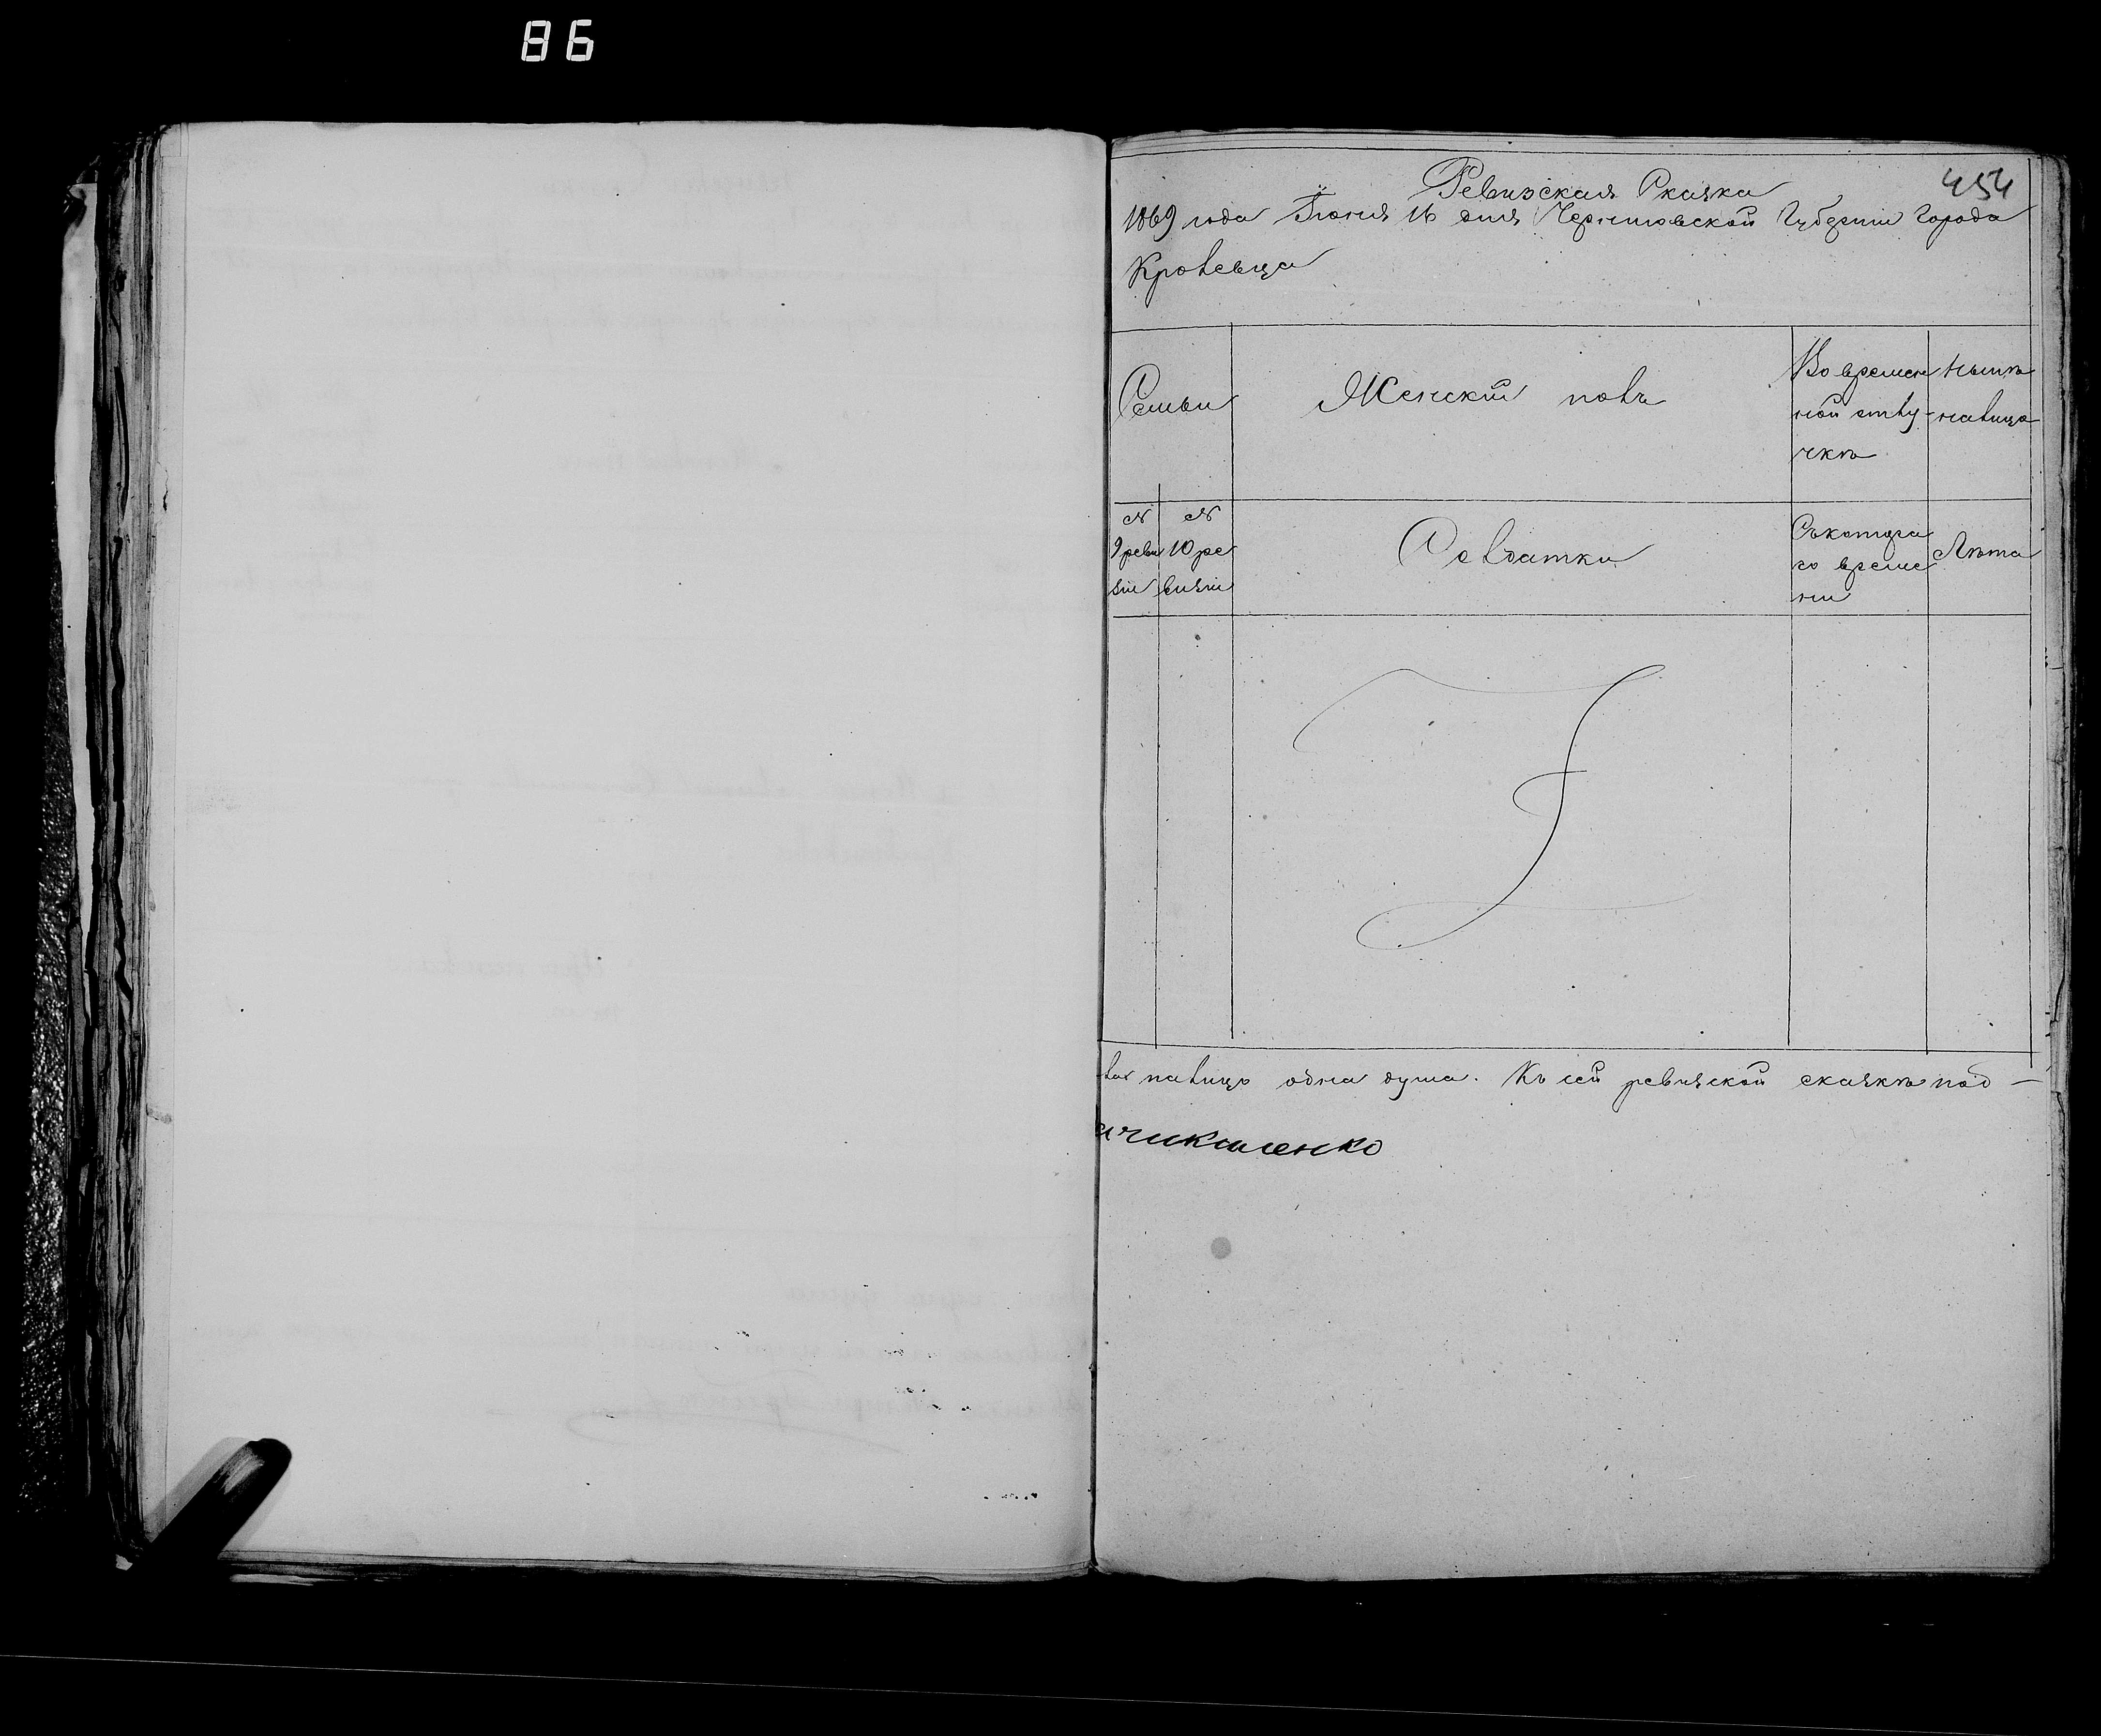 86
454
Ревизская Сказка
1869 года Іюня 16 дня Черниговской Губерніи города
Кролевца
Семьи
Женскій полъ
Во времен
ной отлу-
чкѣ
Нынѣ
налицо
№
9 реви
зіи
№
10 ре
визіи
Солдатки
Съ котора
го време
ни
Лѣта
налицо одна душа. Къ сей ревизской сказкѣ под-